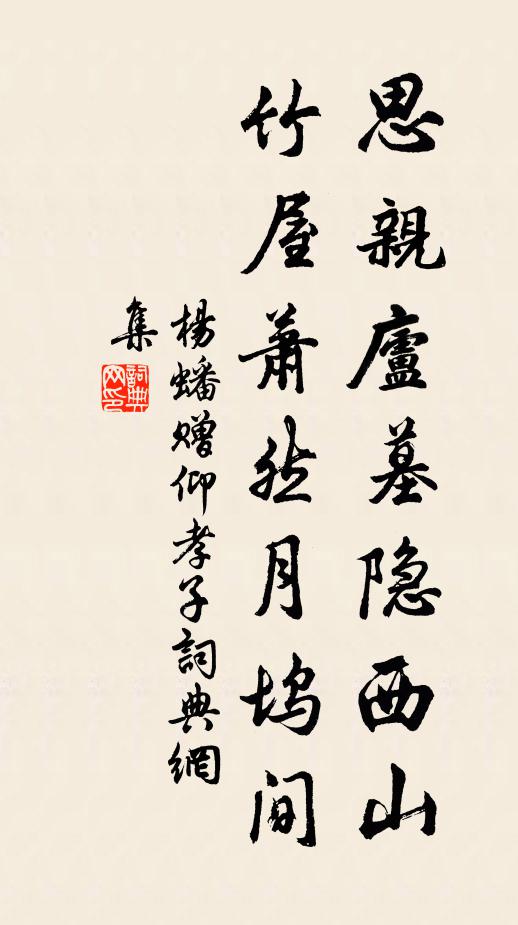 思親廬墓隐西山
竹屋蕭然月坞間
楊蟠赠仰孝子詞典網
集
詞典
网印